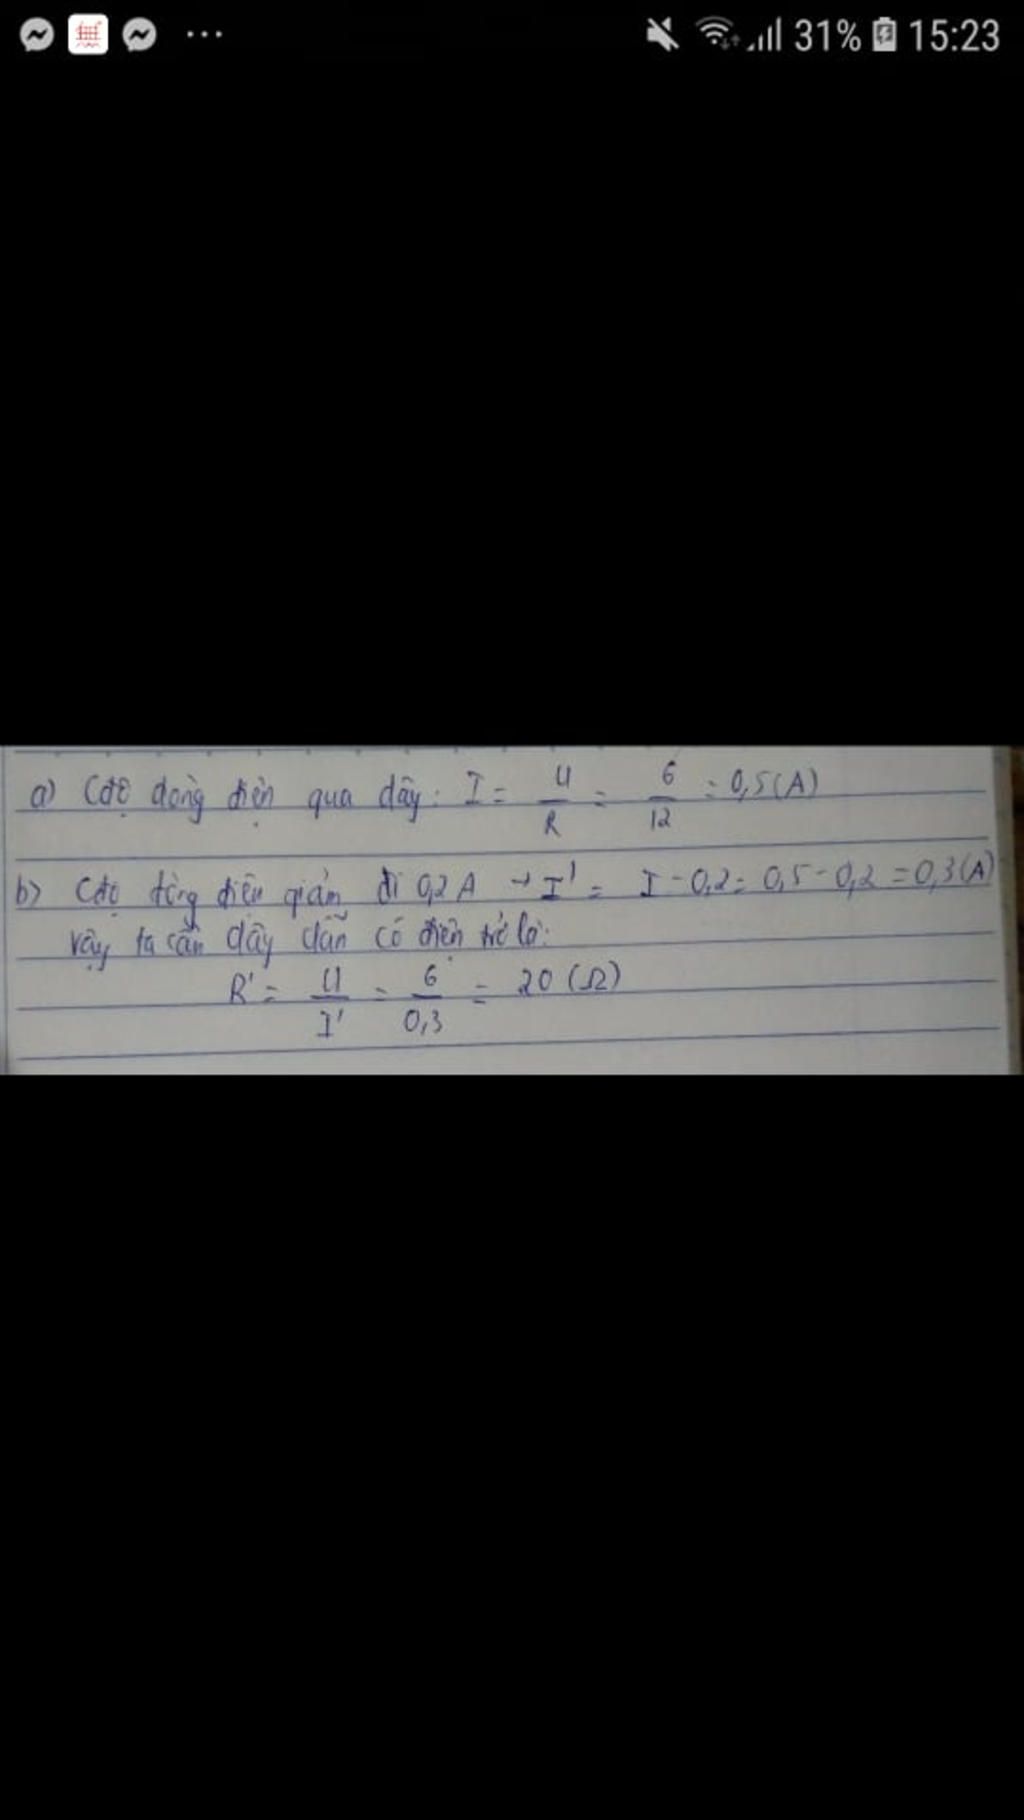 31% 15:23
a) Cđộ dòng điện qua dây: I = U/R = 6/12 = 0,5(A)
b) Cđộ dòng điện giảm đi 0,2A → I' = I - 0,2 = 0,5 - 0,2 = 0,3(A)
vậy ta cần dây dẫn có điện trở là:
R' = U/I' = 6/0,3 = 20 (Ω)